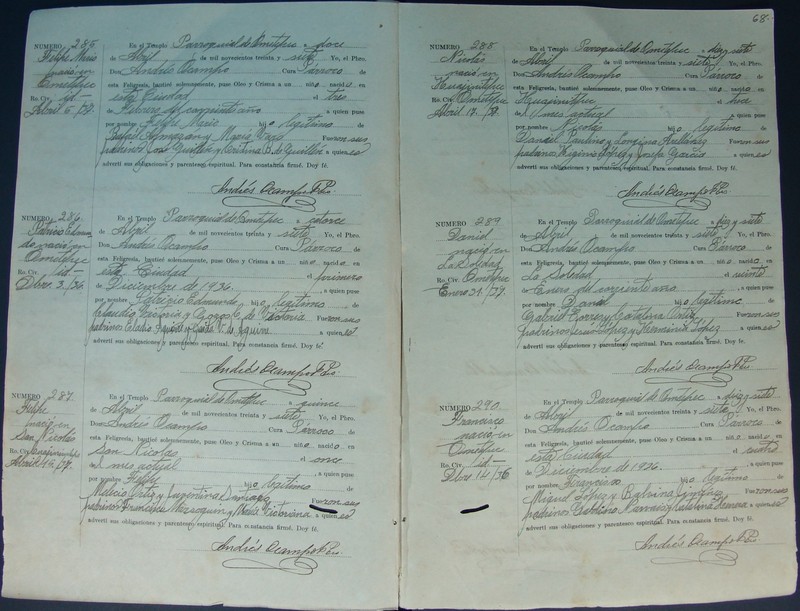 NUMERO 285
Felipe Mario
nació en
Ometepec
Ro. Civ. id—
Abril 5/37.
En el Templo Parroquial de Ometepec a doce
de Abril de mil novecientos treinta y siete Yo, el Pbro.
Don Andrés Ocampo Cura Párroco de
esta Feligresía, bauticé solemnemente, puse Oleo y Crisma a un niño nacido en
esta Ciudad el tres
de Febrero del corriente año a quien puse
por nombre Felipe Mario hijo legítimo de
Rafael y María
Fueron sus
padrinos José Guillén y Cristina B. de Guillén a quienes
advertí sus obligaciones y parentesco espiritual. Para constancia firmé. Doy fé.
Andrés Ocampo P.
NUMERO 286
Patricio Edmundo
nació en
Ometepec
Ro. Civ. id—
Dbre. 3/36
En el Templo Parroquial de Ometepec a catorce
de Abril de mil novecientos treinta y siete Yo, el Pbro.
Don Andrés Ocampo Cura Párroco de
esta Feligresía, bauticé solemnemente, puse Oleo y Crisma a un niño nacido en
esta Ciudad el primero
de Diciembre de 1936. a quien puse
por nombre Patricio Edmundo hijo legítimo de
Fueron sus
padrinos a quienes
advertí sus obligaciones y parentesco espiritual. Para constancia firmé. Doy fé.
Andrés Ocampo P.
NUMERO 287
Felipe
nació en
San Nicolás
Ro. Civ.
Abril 14/37.
En el Templo Parroquial de Ometepec a quince
de Abril de mil novecientos treinta y siete Yo, el Pbro.
Don Andrés Ocampo Cura Párroco de
esta Feligresía, bauticé solemnemente, puse Oleo y Crisma a un niño nacido en
San Nicolás el once
del mes actual a quien puse
por nombre Felipe hijo legítimo de
Ortiz y
Fueron sus
padrinos Francisco y María Victoriana a quienes
advertí sus obligaciones y parentesco espiritual. Para constancia firmé. Doy fé.
Andrés Ocampo P.
68.
NUMERO 288
Nicolás
nació en
Ro. Civ. Ometepec
Abril 17/37
En el Templo Parroquial de Ometepec a diez y siete
de Abril de mil novecientos treinta y siete Yo, el Pbro.
Don Andrés Ocampo Cura Párroco de
esta Feligresía, bauticé solemnemente, puse Oleo y Crisma a un niño nacido en
el tres
del mes actual a quien puse
por nombre Nicolás hijo legítimo de
Daniel y Longina
Fueron sus
padrinos Higinio López y Josefa García a quienes
advertí sus obligaciones y parentesco espiritual. Para constancia firmé. Doy fé.
Andrés Ocampo P.
NUMERO 289
Daniel
nació en
La Soledad
Ro. Civ. Ometepec
Enero 31/37.
En el Templo Parroquial de Ometepec a diez y siete
de Abril de mil novecientos treinta y siete Yo, el Pbro.
Don Andrés Ocampo Cura Párroco de
esta Feligresía, bauticé solemnemente, puse Oleo y Crisma a un niño nacido en
La Soledad el
de Enero del corriente año a quien puse
por nombre Daniel hijo legítimo de
Gabriel Torres y Catalina Ortiz
Fueron sus
padrinos Jesús López y Herminia López a quienes
advertí sus obligaciones y parentesco espiritual. Para constancia firmé. Doy fé.
Andrés Ocampo P.
NUMERO 290
Francisco
nació en
Ometepec
Ro. Civ. id—
Dbre. 14/36
En el Templo Parroquial de Ometepec a diez y siete
de Abril de mil novecientos treinta y siete Yo, el Pbro.
Don Andrés Ocampo Cura Párroco de
esta Feligresía, bauticé solemnemente, puse Oleo y Crisma a un niño nacido en
esta Ciudad el cuatro
de Diciembre de 1936. a quien puse
por nombre Francisco hijo legítimo de
Miguel López y Balbina
Fueron sus
padrinos y Catalina a quienes
advertí sus obligaciones y parentesco espiritual. Para constancia firmé. Doy fé.
Andrés Ocampo P.